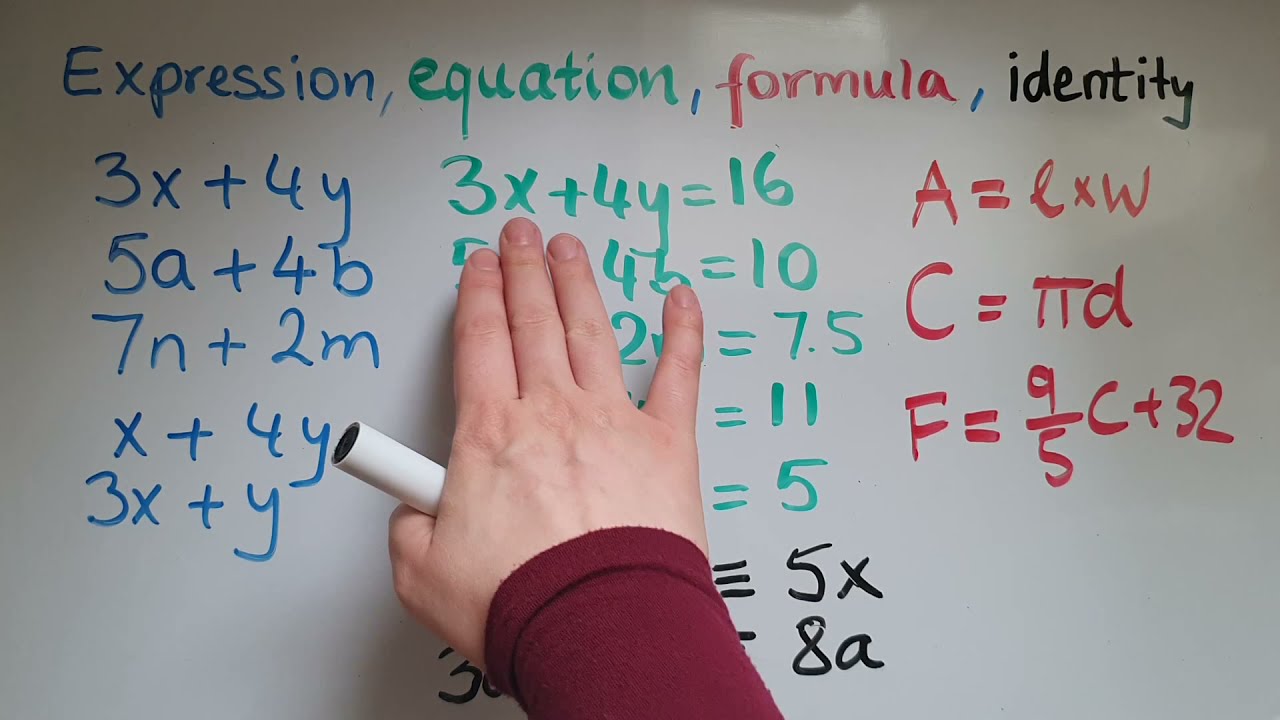 Expression, equation, formula, identity
3x + 4y
5a + 4b
7n + 2m
x + 4y
3x + y
3x + 4y = 16
4b = 10
= 7.5
= 11
= 5
≡ 5x
8a
A = l x w
C = πd
F = 9/5 C + 32